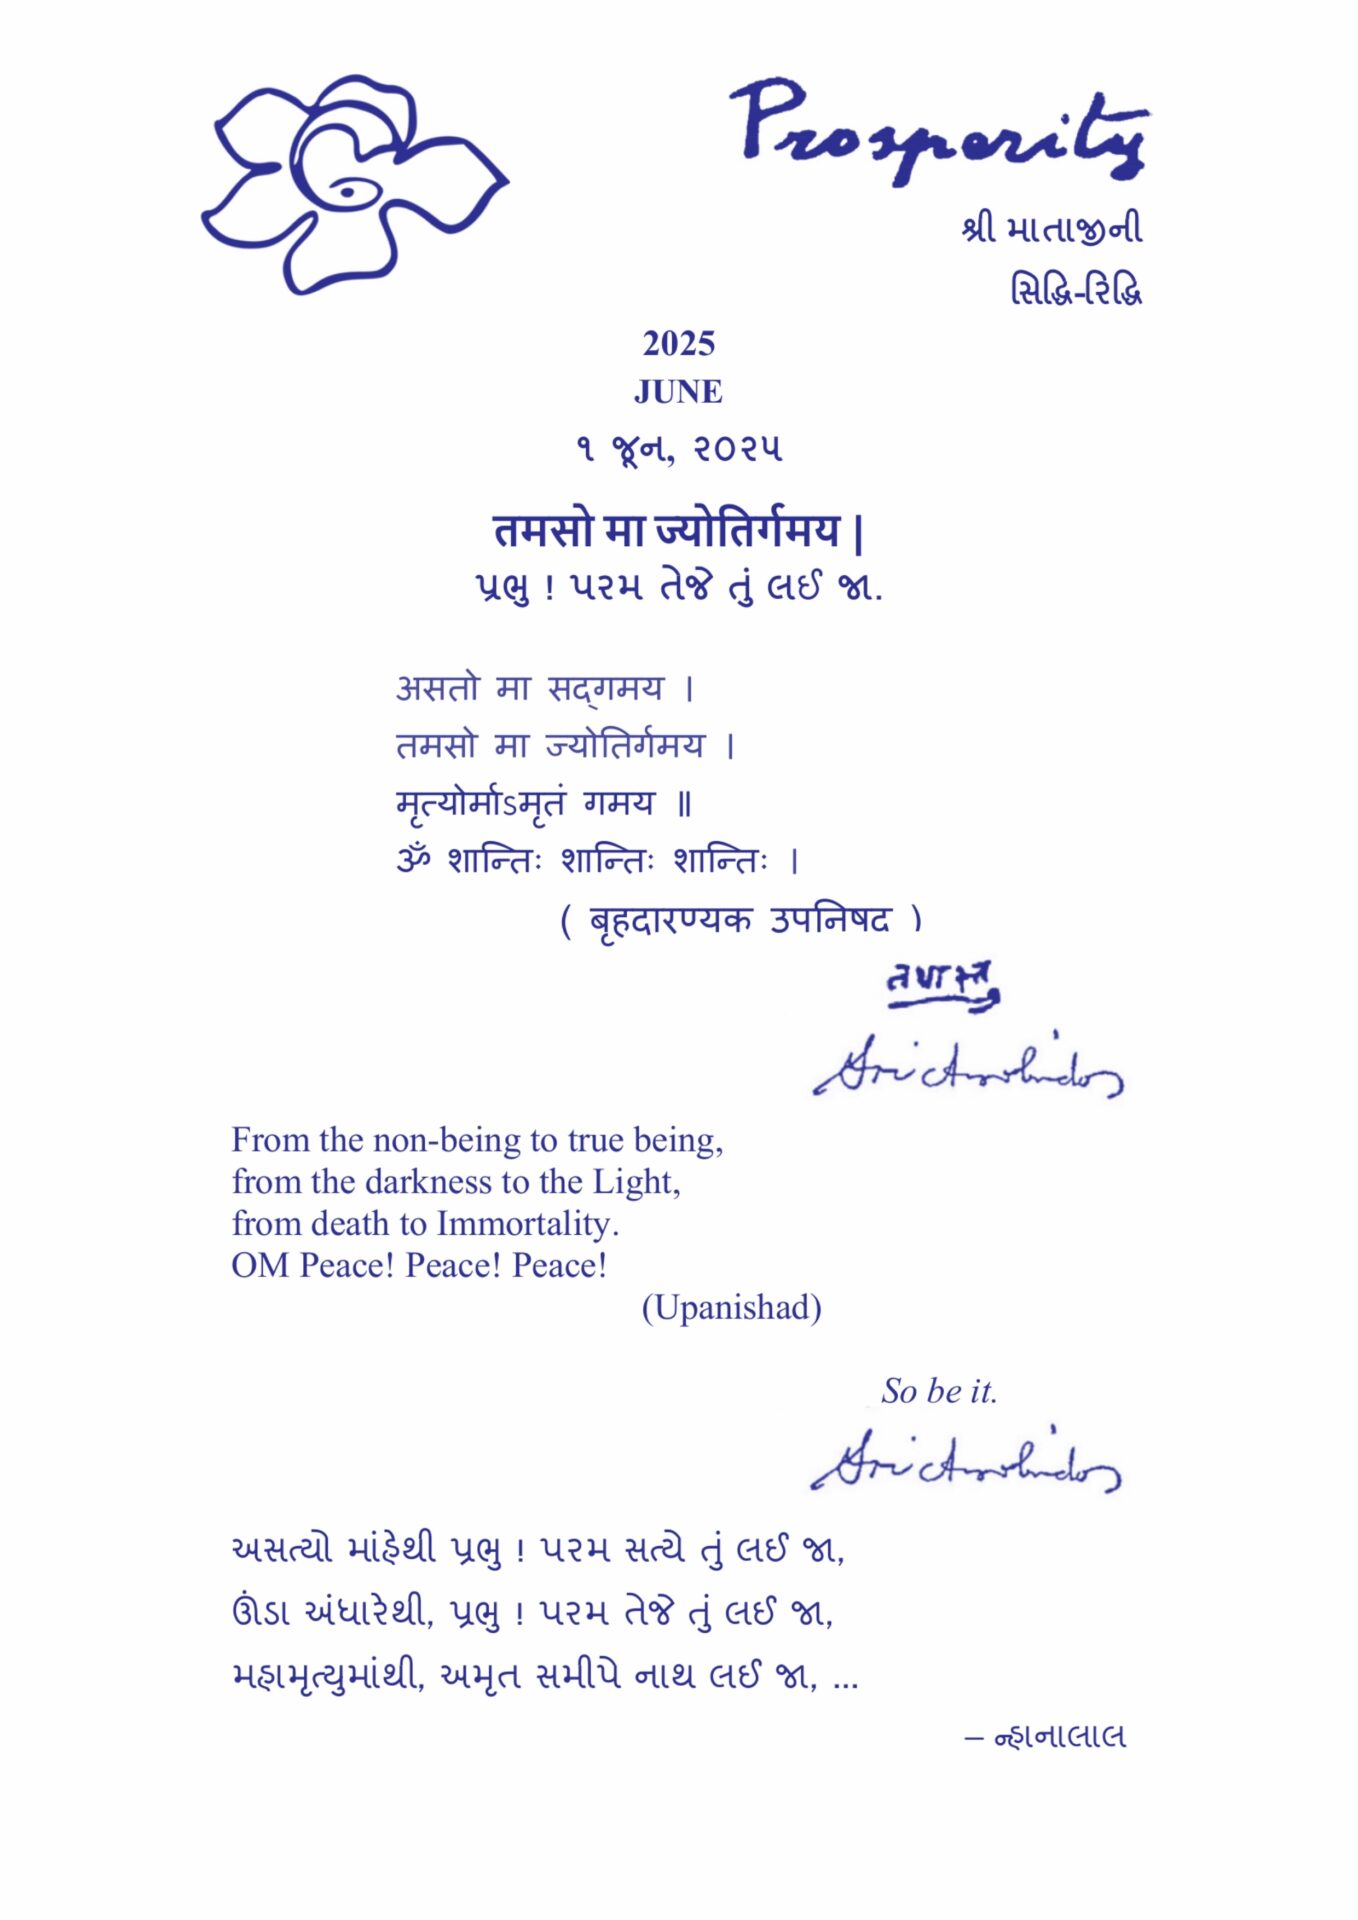 Prosperity
શ્રી માતાજીની
સિદ્ધિ-રિદ્ધિ
2025
JUNE
૧ જૂન, ૨૦૨૫
तमसो मा ज्योतिर्गमय |
પ્રભુ ! પરમ તેજે તું લઈ જા.
असतो मा सद्‌गमय ।
तमसो मा ज्योतिर्गमय ।
मृत्योर्माऽमृतं गमय ॥
ॐ शान्तिः शान्तिः शान्तिः ।
( बृहदारण्यक उपनिषद )
तथास्तु
Sri Aurobindo
From the non-being to true being,
from the darkness to the Light,
from death to Immortality.
OM Peace! Peace! Peace!
(Upanishad)
So be it.
Sri Aurobindo
અસત્યો માંહેથી પ્રભુ ! પરમ સત્યે તું લઈ જા,
ઊંડા અંધારેથી, પ્રભુ ! પરમ તેજે તું લઈ જા,
મહામૃત્યુમાંથી, અમૃત સમીપે નાથ લઈ જા, ...
– ન્હાનાલાલ